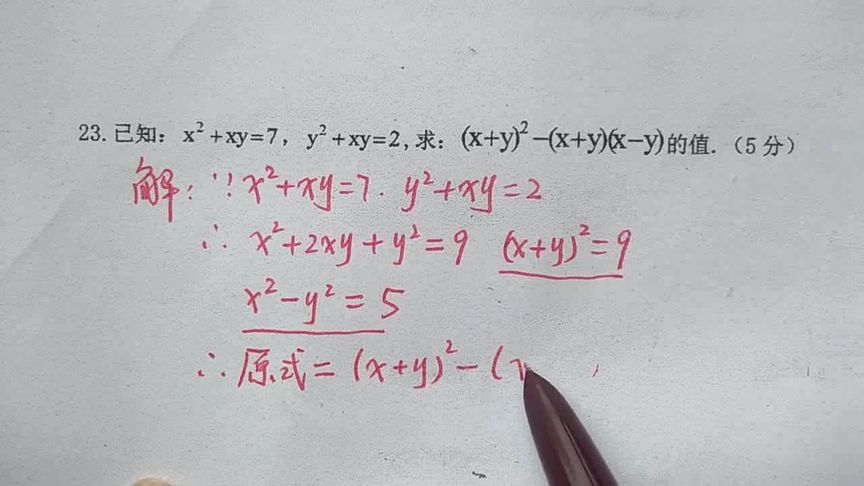 23.已知：x²+xy=7，y²+xy=2,求：(x+y)²-(x+y)(x-y)的值.（5分）
解：∵x²+xy=7. y²+xy=2
∴ x²+2xy+y²=9 (x+y)²=9
x²-y²=5
∴原式=(x+y)²-(